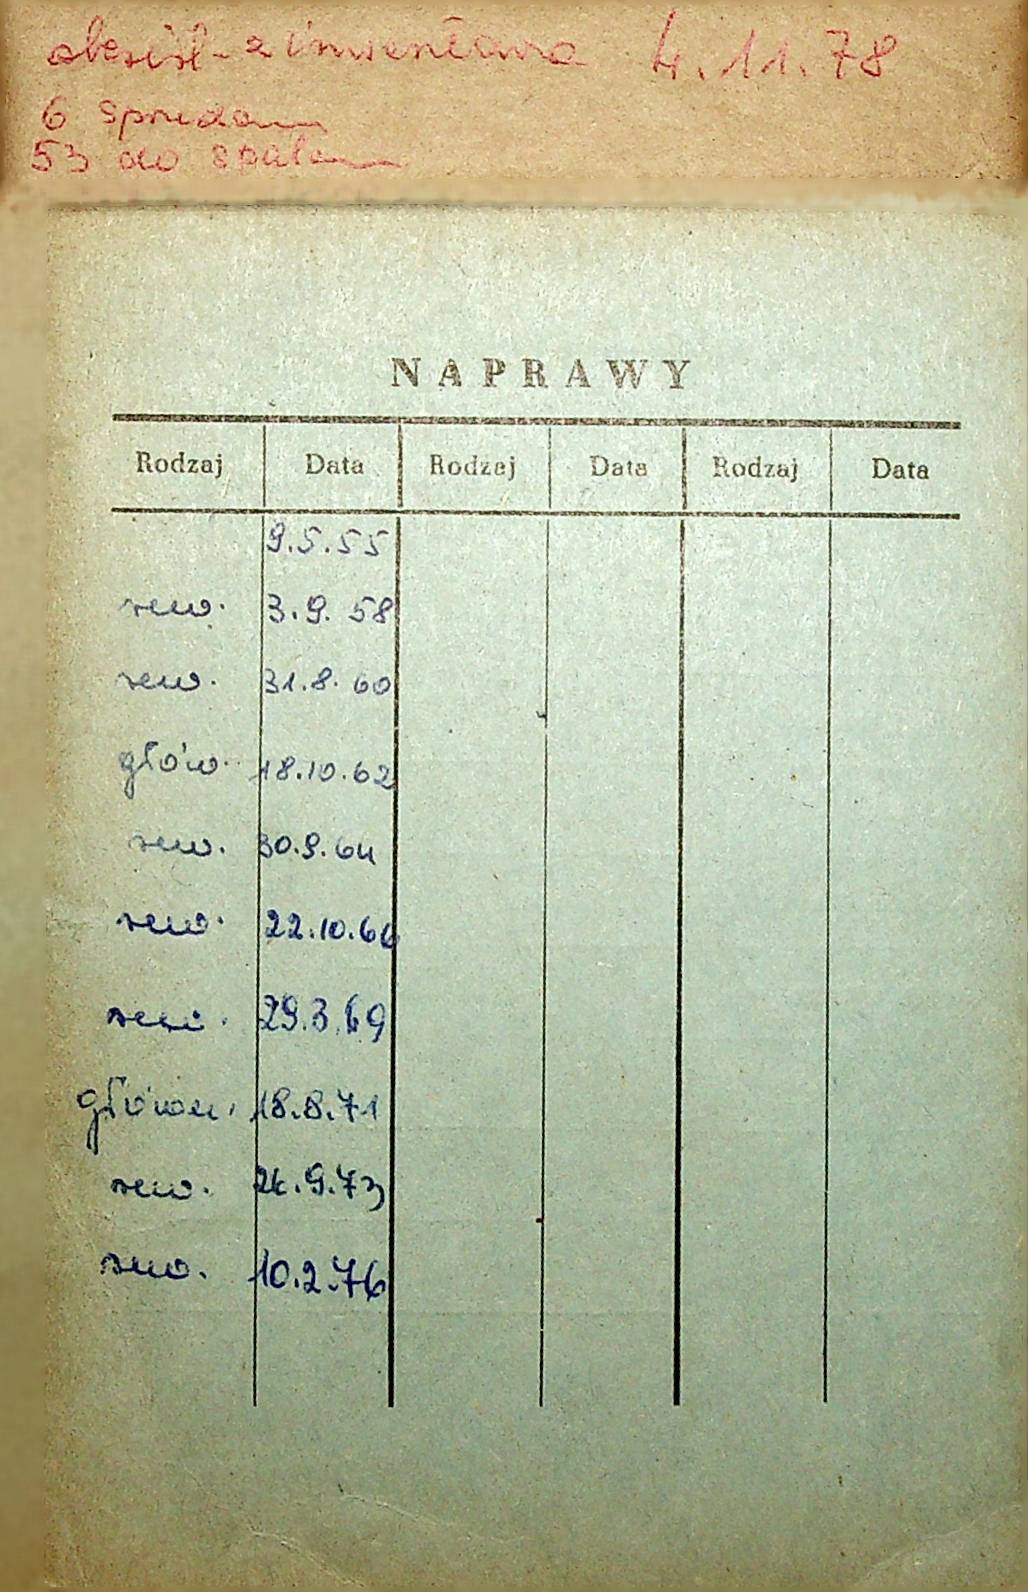 z inwentara 4.11.78
6 sprzedam
53 do spalam
NAPRAWY
Rodzaj Data Rodzaj Data Rodzaj Data
9.5.55
rew. 3.9.58
rew. 31.8.60
głów. 18.10.62
rew. 30.9.64
rew. 22.10.66
rew. 29.3.69
główn. 18.8.71
rew. 26.9.73
rew. 10.2.76